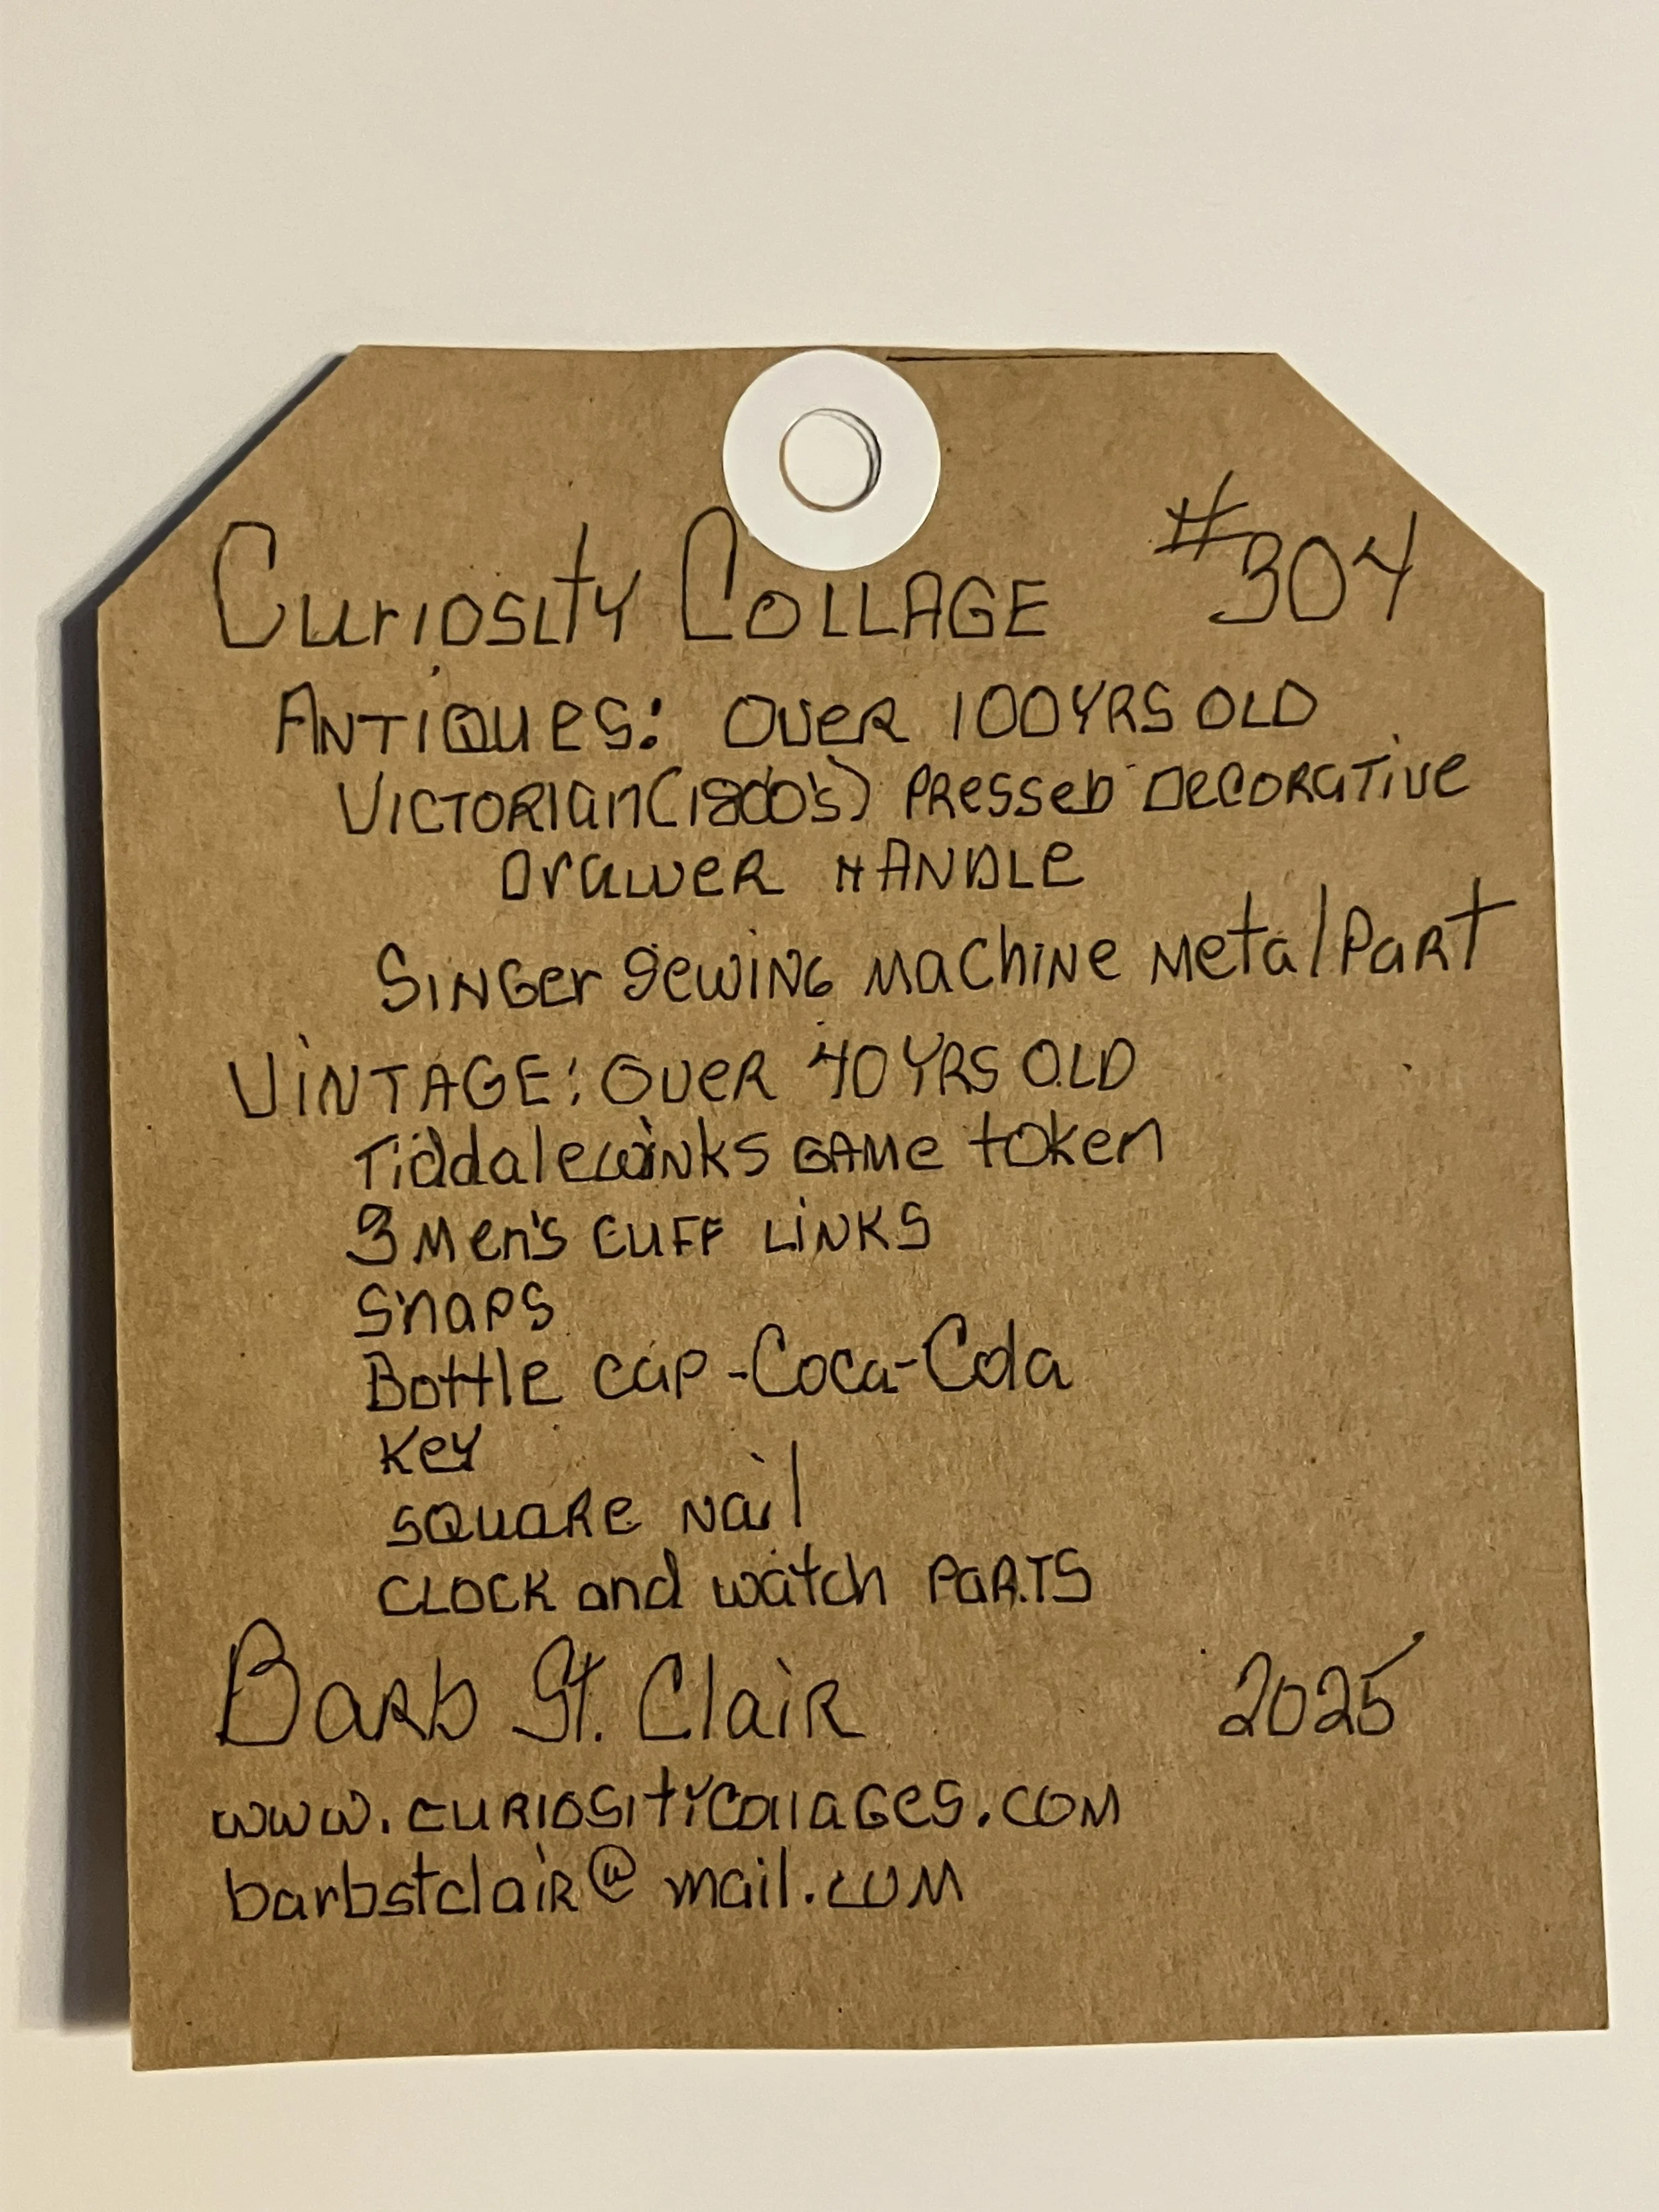 Curiosity Collage #304
Antiques: Over 100 yrs old
Victorian (1800's) Pressed Decorative
Drawer Handle
Singer Sewing Machine Metal Part
Vintage: Over 40 yrs old
Tiddalewinks Game token
3 Men's Cuff Links
Snaps
Bottle cap - Coca-Cola
Key
Square Nail
Clock and watch Parts
Barb St. Clair 2025
www.curiositycollages.com
barbstclair@mail.com